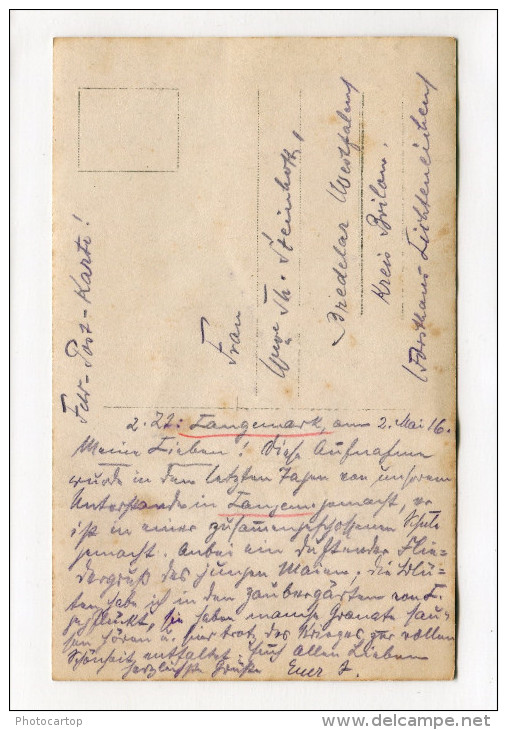 Feld-Post-Karte!
Frau
Wwe Th. Steinhoff,
Bredelar Westfalen
Kreis Brilon.
(Forsthaus Lichteneichen)
z. Zt: Langemark, am 2. Mai 16.
Meine Lieben! Diese Aufnahme
wurde in den letzten Tagen von unserem
Unterstande in Langem. gemacht, er
ist in einer zusammengeschossenen Schule
gemacht. Anbei ein duftender Flie-
dergruß des jungen Maien, die Blü-
ten habe ich in den Zaubergärten von L.
gepflückt, sie haben manche Granate sau-
sen hören u. sich trotz des Krieges zur vollen
Schönheit entfaltet. Euch allen Lieben
herzlichste Grüße Euer
Photocartop
http://www.delcampe.net